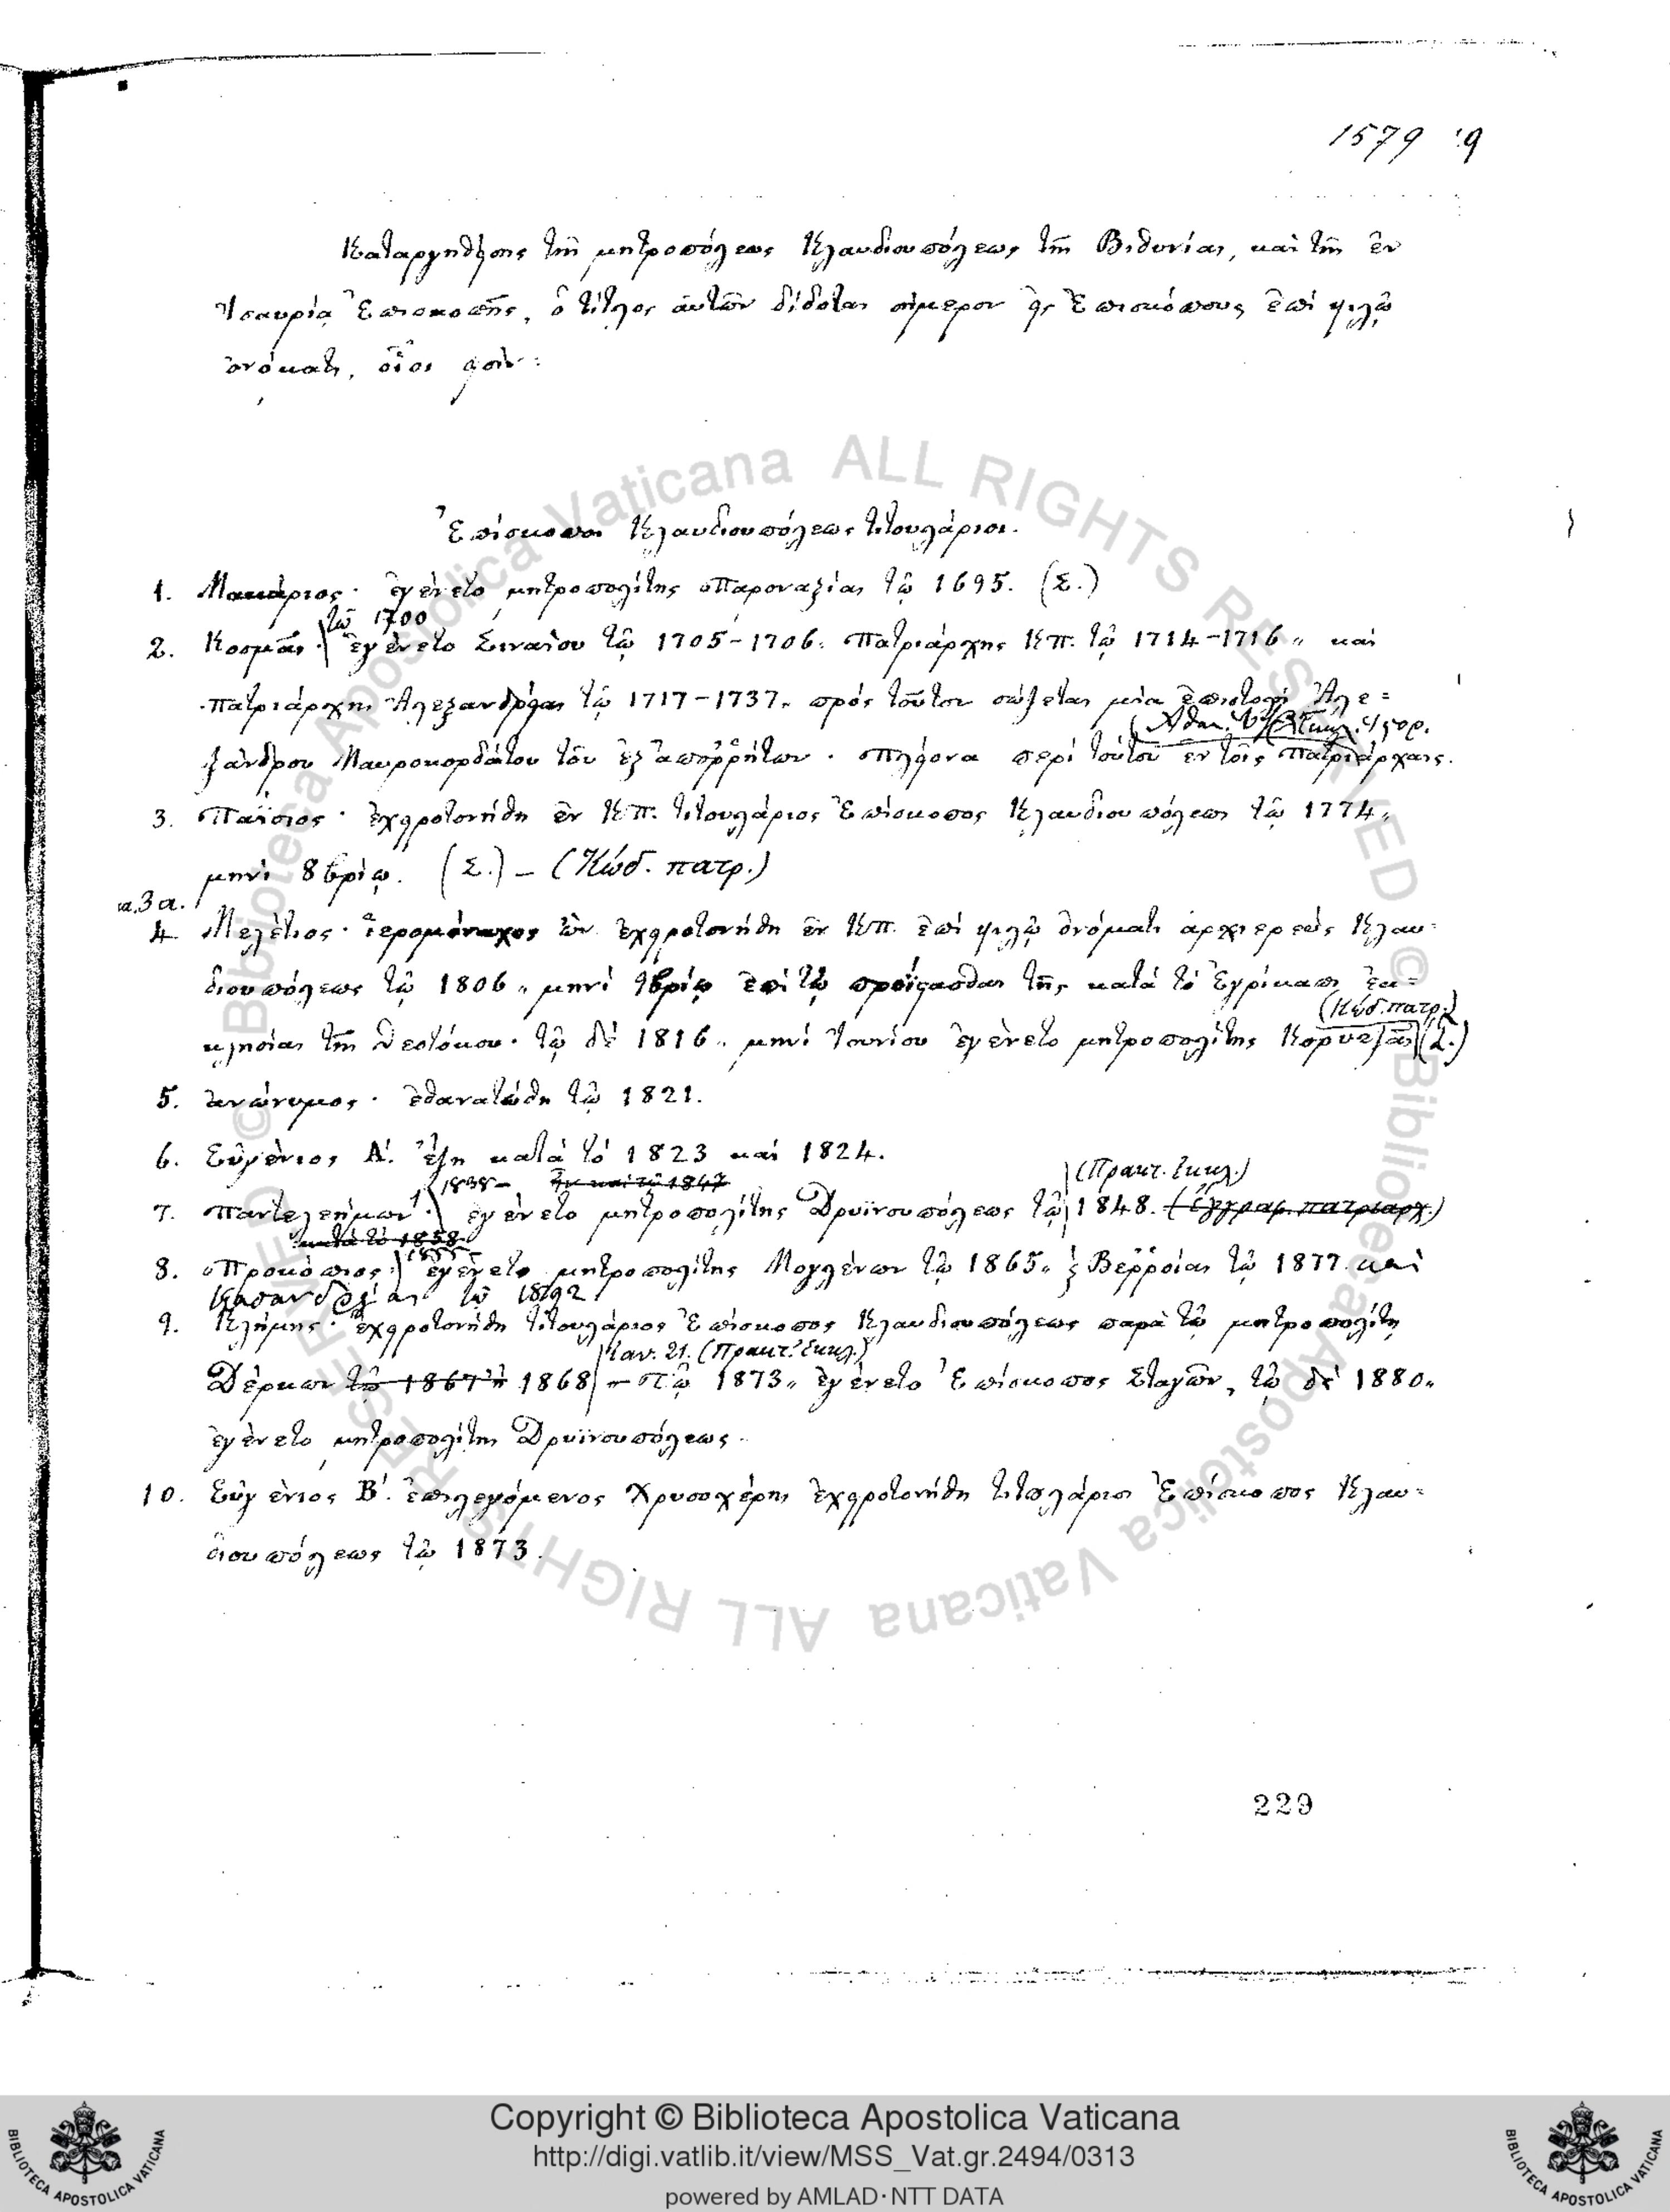 1579 9
Καταργηθείσης τῆς μητροπόλεως Κλαυδιουπόλεως τῆς Βιθυνίας, καὶ τῆς ἐν
Ἰσαυρίᾳ Ἐπισκοπῆς, ὁ τίτλος αὐτῶν δίδοται σήμερον εἰς Ἐπισκόπους ἐπὶ ψιλῷ
ὀνόματι, οἷοι εἰσὶν:
Ἐπίσκοποι Κλαυδιουπόλεως τιτουλάριοι.
1. Μακάριος· ἐγένετο μητροπολίτης Παροναξίας τῷ 1695. (Σ.)
τῷ 1700
2. Κοσμᾶς· ἐγένετο Σιναίου τῷ 1705-1706. Πατριάρχης Κπ. τῷ 1714-1716 „ καὶ
Πατριάρχης Ἀλεξανδρείας τῷ 1717-1737. πρὸς τοῦτον σώζεται μία ἐπιστολὴ Ἀλε=
ξάνδρου Μαυροκορδάτου τοῦ ἐξ ἀπορρήτων· πλείονα περὶ τούτου ἐν τοῖς Πατριάρχαις.
3. Παΐσιος· ἐχειροτονήθη ἐν Κπ. τιτουλάριος Ἐπίσκοπος Κλαυδιουπόλεως τῷ 1774 „
μηνὶ 8βρίῳ. (Σ.) – (Κώδ. πατρ.)
3α.
4. Μελέτιος· ἱερομόναχος ὢν ἐχειροτονήθη ἐν Κπ. ἐπὶ ψιλῷ ὀνόματι ἀρχιερεὺς Κλαυ=
διουπόλεως τῷ 1806 „ μηνὶ 9βρίῳ ἐπὶ τῷ προΐστασθαι τῆς κατὰ τὸ Ἐγρίκαπι ἐκ=
(Κώδ. πατρ.)
κλησίας τῆς Θεοτόκου· τῷ δὲ 1816 „ μηνὶ Ἰουνίου ἐγένετο μητροπολίτης Κορυτζᾶς (Σ.)
5. ἀνώνυμος· ἐθανατώθη τῷ 1821.
6. Εὐγένιος Α΄. ἔζη κατὰ τὸ 1823 καὶ 1824.
1838 – ἦν καὶ τῷ 1847 (Πρακτ. Ἐκκλ.)
7. Παντελεήμων· ἐγένετο μητροπολίτης Δρυϊνουπόλεως τῷ 1848. (ἔγγραφ. πατριαρχ.)
κατὰ τὸ 1858
1855
8. Προκόπιος· ἐγένετο μητροπολίτης Μογλένων τῷ 1865 „ Βερροίας τῷ 1877 καὶ
Κασανδρείας τῷ 1892
9. Κλήμης· ἐχειροτονήθη τιτουλάριος Ἐπίσκοπος Κλαυδιουπόλεως παρὰ τῷ μητροπολίτῃ
Ἰαν. 21. (Πρακτ. Ἐκκλ.)
Δέρκων τῷ 1867 ἢ 1868 – τῷ 1873 „ ἐγένετο Ἐπίσκοπος Σταγῶν, τῷ δὲ 1880 „
ἐγένετο μητροπολίτης Δρυϊνουπόλεως.
10. Εὐγένιος Β΄. ἐπιλεγόμενος Χρυσοχέρης ἐχειροτονήθη τιτουλάριος Ἐπίσκοπος Κλαυ=
διουπόλεως τῷ 1873.
229
© Biblioteca Apostolica Vaticana ALL RIGHTS RESERVED
© Biblioteca Apostolica Vaticana ALL RIGHTS RESERVED
Copyright © Biblioteca Apostolica Vaticana
http://digi.vatlib.it/view/MSS_Vat.gr.2494/0313
powered by AMLAD·NTT DATA
BIBLIOTECA APOSTOLICA VATICANA
BIBLIOTECA APOSTOLICA VATICANA